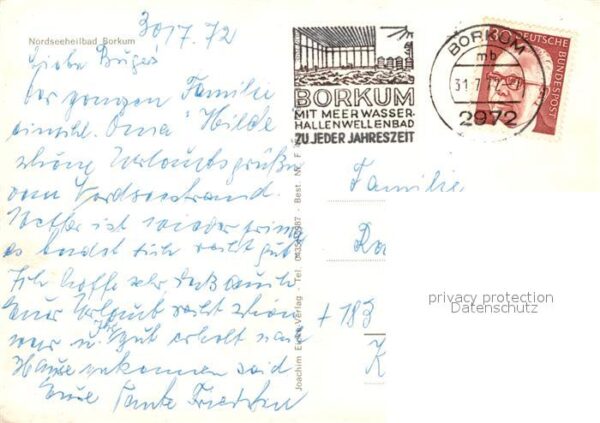 Nordseeheilbad Borkum
30 17. 72
Liebe
der ganzen Familie
einschl. Oma Hilde
schöne Urlaubsgrüße
vom Nordseestrand.
Wetter ist wieder prima
es badet sich recht gut
Ich hoffe sehr daß auch
Euer Urlaub recht schön
war u. Ihr gut erholt nach
Hause gekommen seid
Eure Tante Friedchen
BORKUM
MIT MEERWASSER-
HALLENWELLENBAD
ZU JEDER JAHRESZEIT
BORKUM
mb
31.7.
2972
30 DEUTSCHE
BUNDESPOST
Joachim Verlag - Tel. - Best. Nr. F
Familie
privacy protection
Datenschutz
+ 183
K